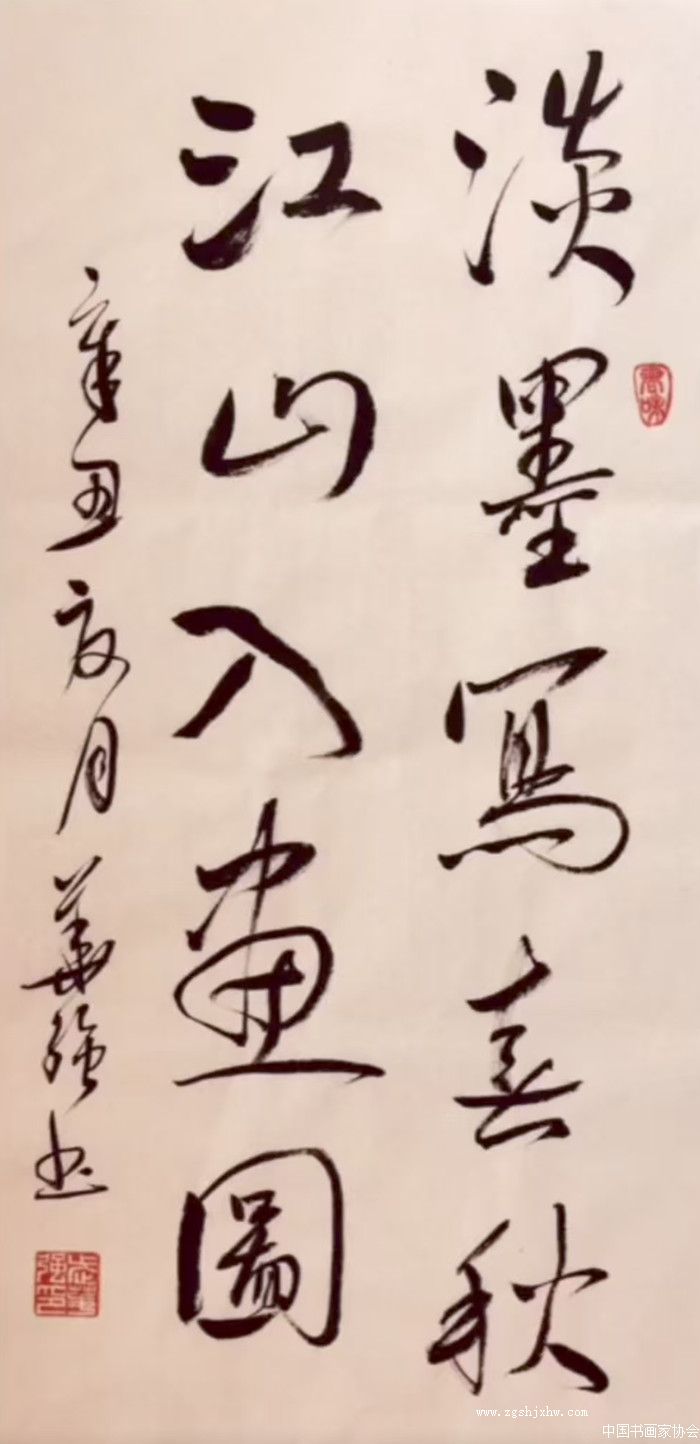 淡墨寫喜秋
江山入畫圖
辛丑夏月華強書
www.zgshjxhw.com
中国书画家协会